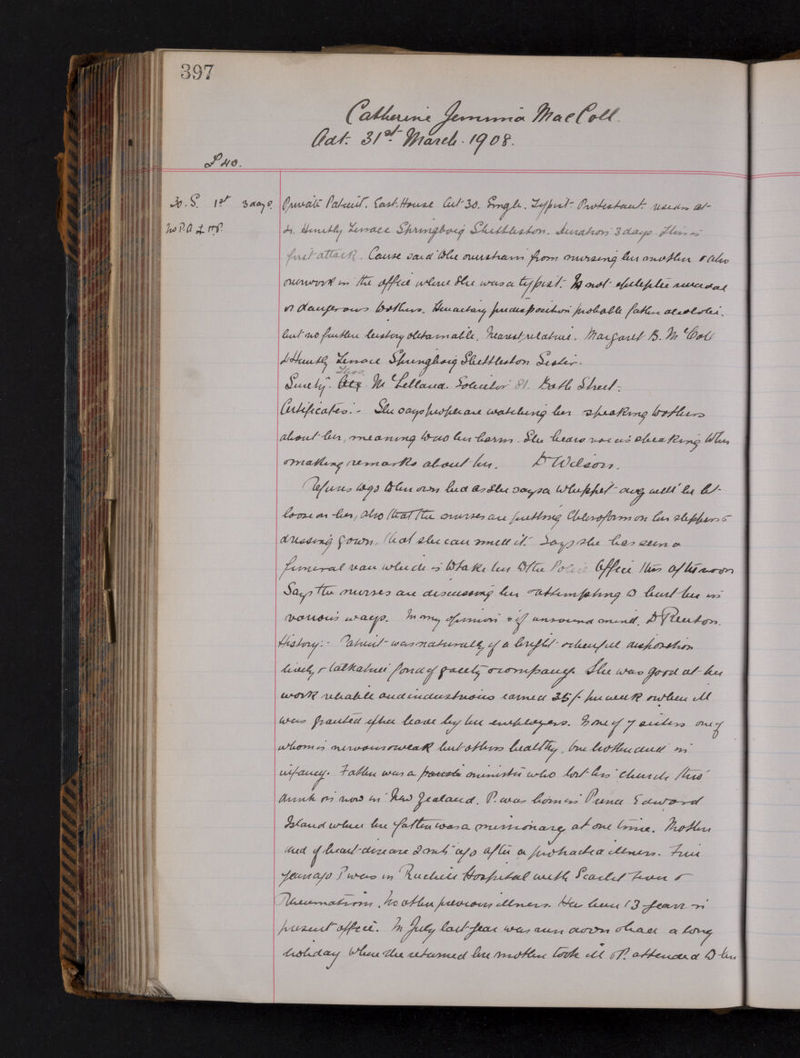 397
Catherine Jemima MacColl.
Adt: 31st March. 1908.
£40.
1st 3 days. Private Patient. East. House Aet 30. Single. Typist. Protestant. resides at
No P.A 4 Huntly Terrace Springboig Shettleston. duration 3 days. This is
first attack. Cause said to be overstrain from nursing her mother & also
overwork in the office where she was a typist. Is not epileptic suicidal
or dangerous to others. Hereditary predisposition probable father alcoholic.
but no further history obtainable. Nearest relative. Margaret B. McColl
4 Huntly Terrace Springboig Shettleston Sister.
Surety. McLelland. Solicitor Bath Street.
Certificates:- She says people are watching her speaking to others
about her, meaning to do her harm. She hears voices speaking to her
making remarks about her. Dr Wilson.
Refuses to go to her own bed as she says a whippet dog will be let
loose on her, also that the nurses are putting Chloroform on her slippers &
dressing gown. that she can smell it. Says she has seen a
funeral van which is to take her to the Police Office this afternoon
Says the nurses are discussing her & attempting to hurt her in
various ways. In my opinion is of unsound mind. Dr
History:- Patient was naturally of a bright & cheerful disposition
lively & talkative fond of gaiety & company. She was good at her
work reliable and industrious earned 35/- per week & when ill
was granted leave by her employers. Is one of 7 sisters one of
whom is nervous & weak but others healthy, one brother died in
infancy. Father was a parish minister who lost his church thro'
drink & is now in New Zealand. P. was born in Prince Edward
Island where her father was a missionary at one time. Mother
died of heart disease ago after a protracted illness. Five
years ago P was in Ruchill Hospital with Scarlet Fever &
Rheumatism. No other previous illness. Has been 13 years in
present office. In July last year was run down & had a long
holiday. When she returned her mother took ill & P. attended to her